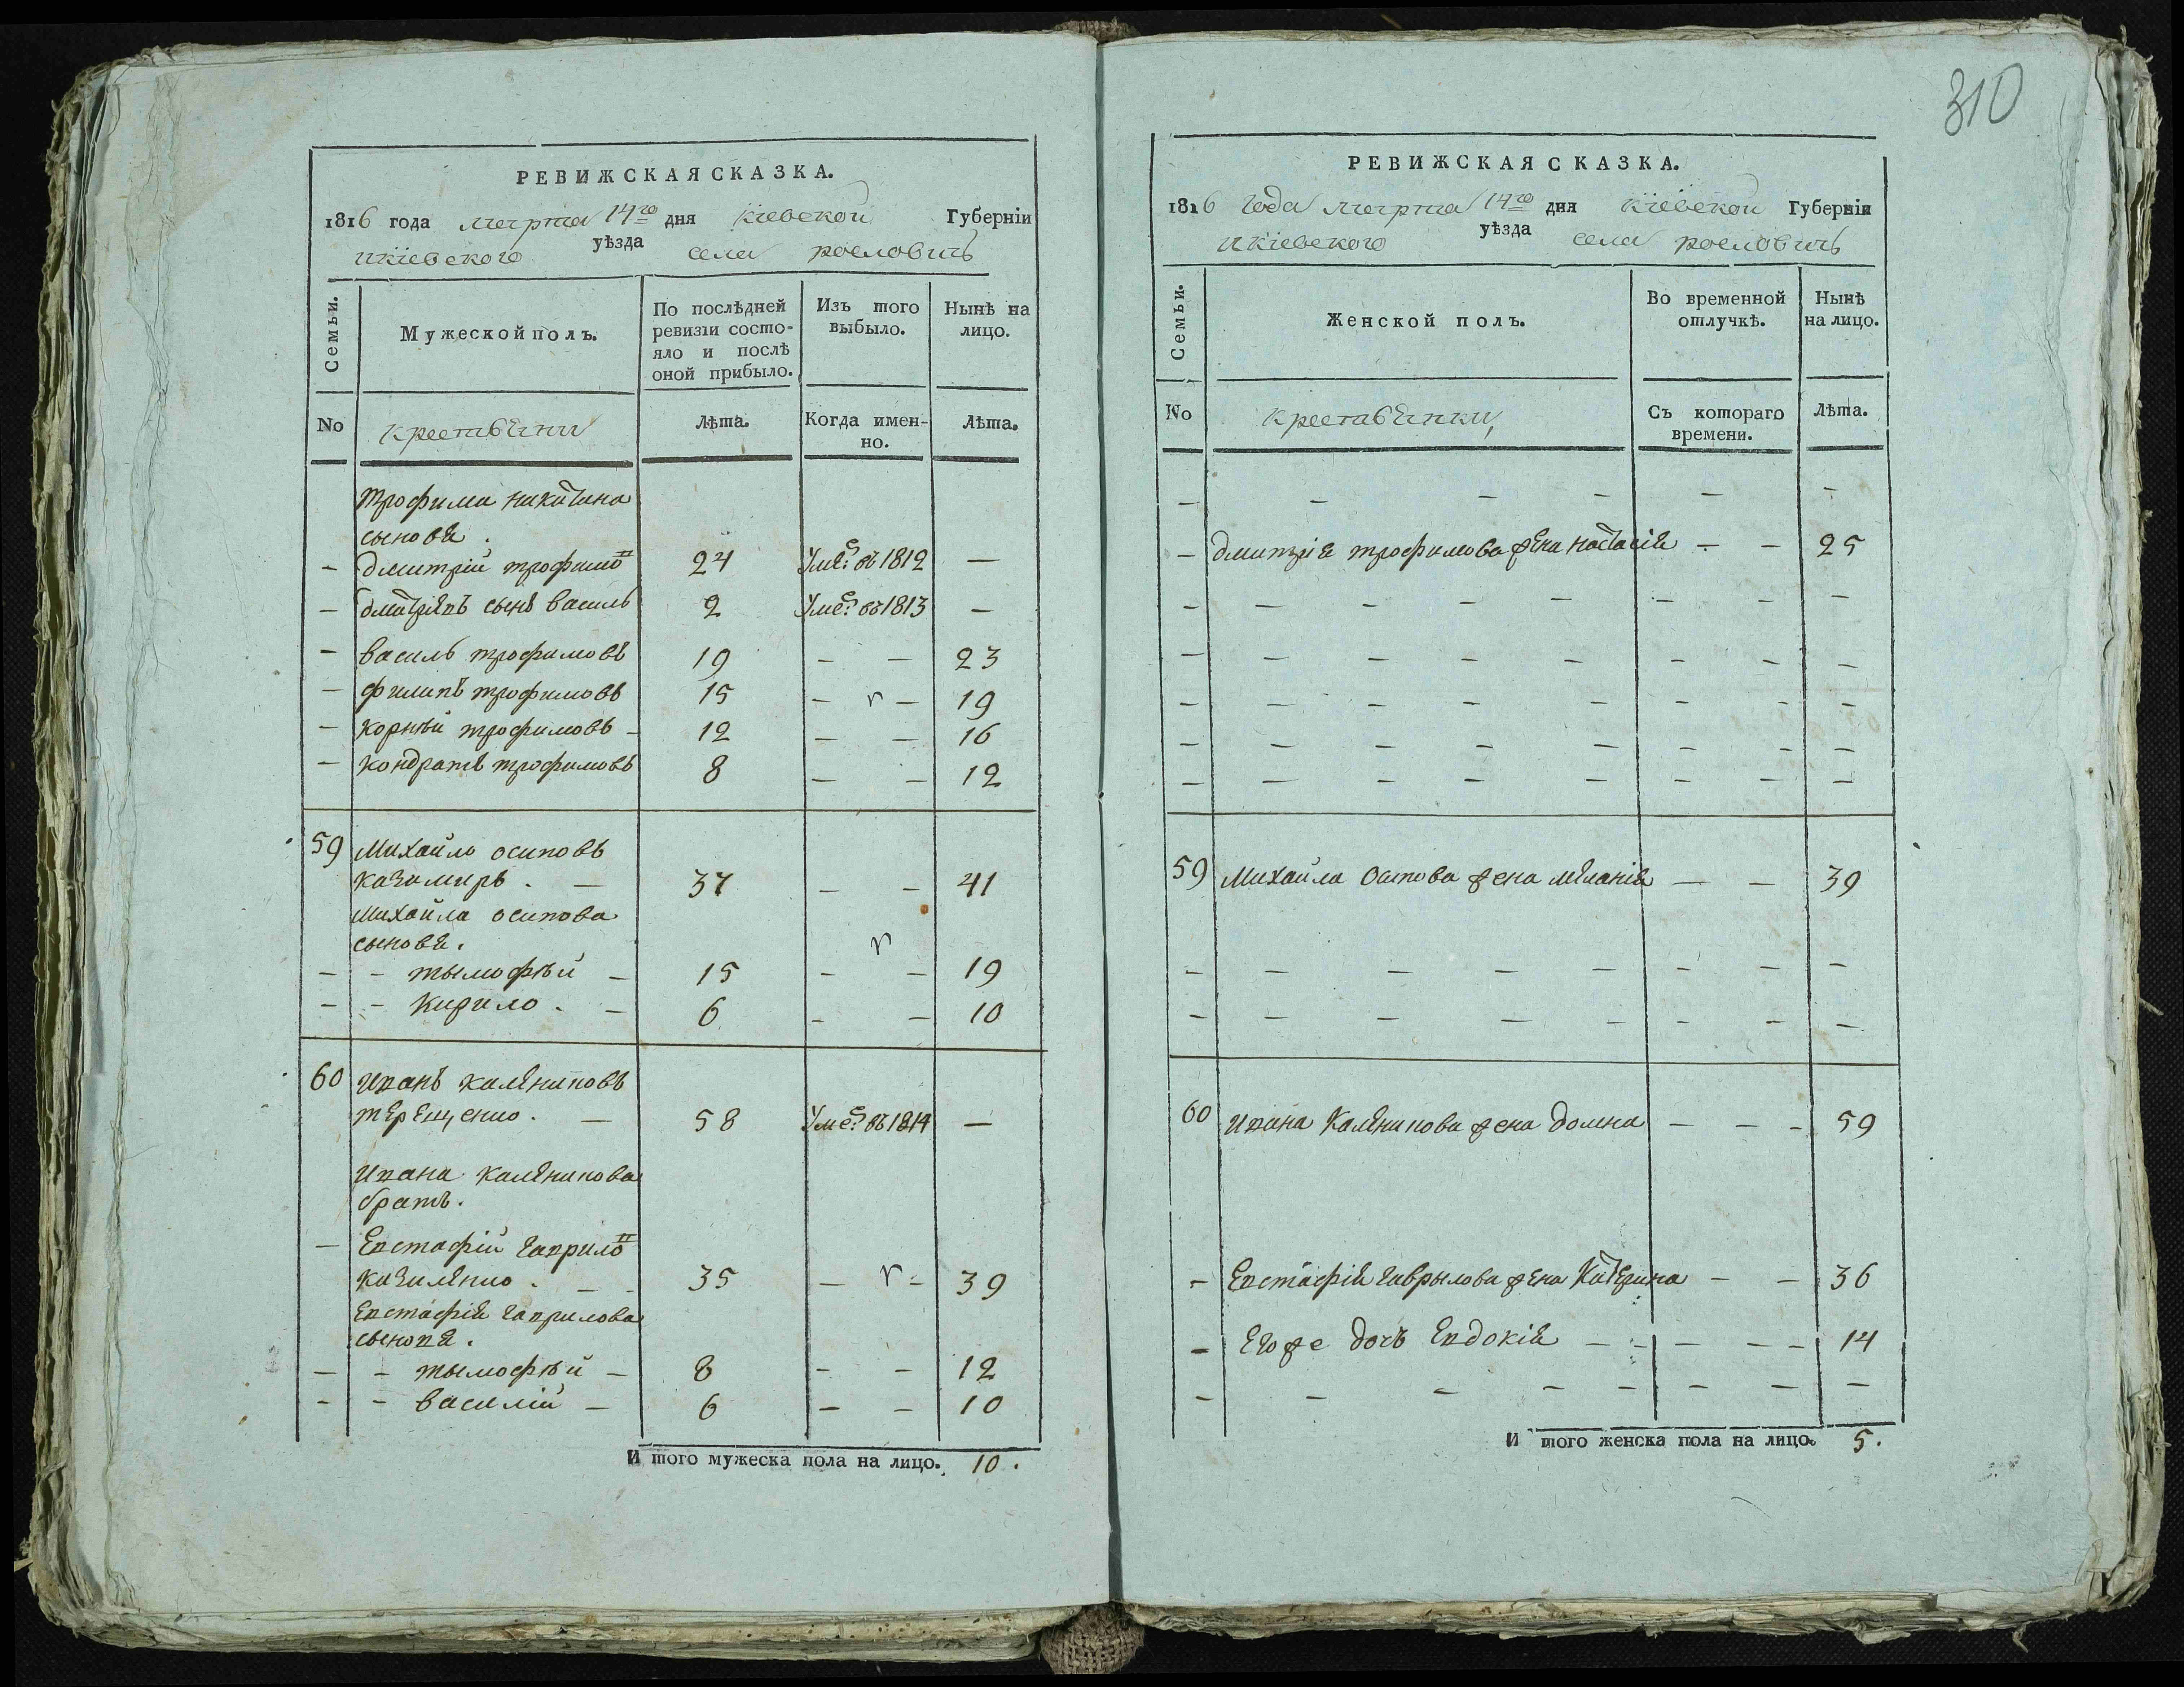 310
РЕВИЖСКАЯ СКАЗКА.
1816 года марта 14го дня кіевской Губерніи
икіевского уѣзда села рословичъ
Семьи.
Мужеской полъ.
По послѣдней ревизіи состо-
яло и послѣ
оной прибыло.
Изъ того
выбыло.
Нынѣ на
лицо.
No
Лѣта.
Когда имен-
но.
Лѣта.
трофима никитина
сыновя.
- дмитрій трофимовъ 24 Умеръ въ 1812 —
- сынъ василь 2 Умеръ въ 1813 —
- василь трофимовъ 19 - - 23
- филипъ трофимовъ 15 - - 19
- корнѣй трофимовъ - 12 - - 16
- кондратъ трофимовъ 8 - - 12
59 Михайло осиповъ
казимиръ. - 37 - - 41
Михайла осипова
сыновя.
- - тымофѣй - 15 - - 19
- - кирило. - 6 - - 10
60 Иванъ калениковъ
терещенко. - 58 Умеръ въ 1814 —
Ивана каленикова
братъ.
- Евстафій гавриловъ
35 - - 39
Евстафія гаврилова
сыновя.
- - тымофѣй - 8 - - 12
- - василій - 6 - - 10
И того мужеска пола на лицо. 10.
РЕВИЖСКАЯ СКАЗКА.
1816 года марта 14го дня кіевской Губерніи
икіевского уѣзда села рословичъ
Семьи.
Женской полъ.
Во временной
отлучкѣ.
Нынѣ
на лицо.
No
Съ котораго
времени.
Лѣта.
- - - - - -
- дмитрія трофимова жена настасія - - 25
- - - - - - - -
- - - - - - - -
- - - - - - - -
- - - - - - - -
- - - - - - - -
59 Михайла осипова жена меланія - - 39
- - - - - - - -
- - - - - - - -
60 Ивана Каленикова жена Домна - - - 59
- Евстафія гаврылова жена Катерина - - 36
- Его же дочь Евдокія - - - - - 14
- - - - - - - -
И того женска пола на лицо. 5.